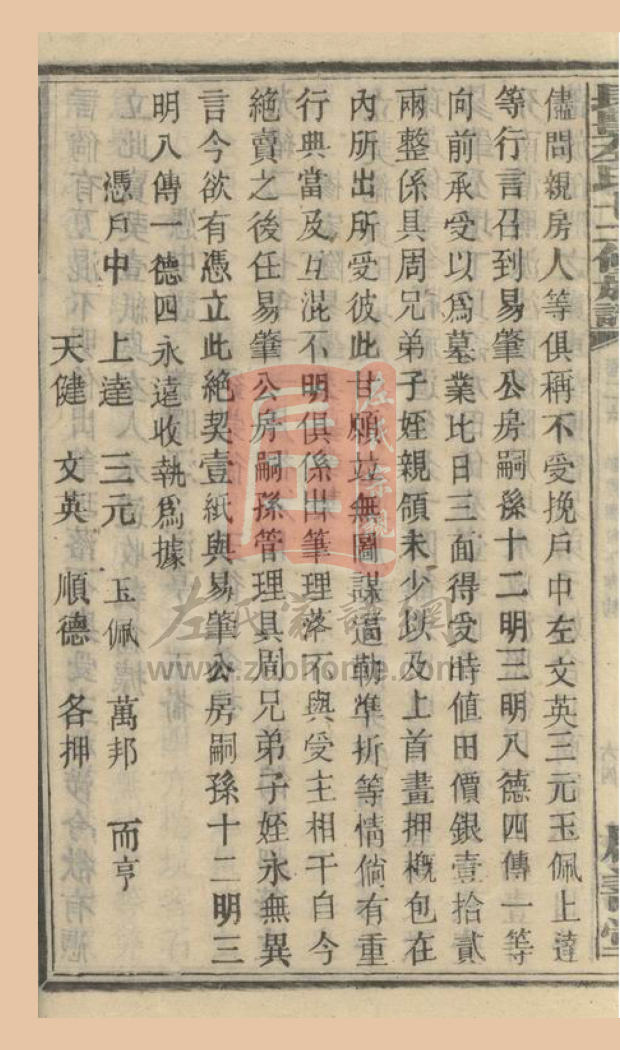 儘問親房人等俱稱不受挽戶中左文英三元玉佩上達
等行言召到易肇公房嗣孫十二明三明八德四傳一等
向前承受以爲墓業比日三面得受時値田價銀壹拾貳
兩整係具周兄弟子姪親領未少以及上首畫押概包在
內所出所受彼此甘願並無圖謀逼勒準折等情倘有重
行典當及互混不明俱係出筆理落不與受主相干自今
絶賣之後任易肇公房嗣孫管理具周兄弟子姪永無異
言今欲有憑立此絶契壹紙與易肇公房嗣孫十二明三
明八傳一德四永遠收執爲據
憑戶中 上達 三元 玉佩 萬邦 而亨
天健 文英 順德 各押
左氏家譜網
www.zuohome.com